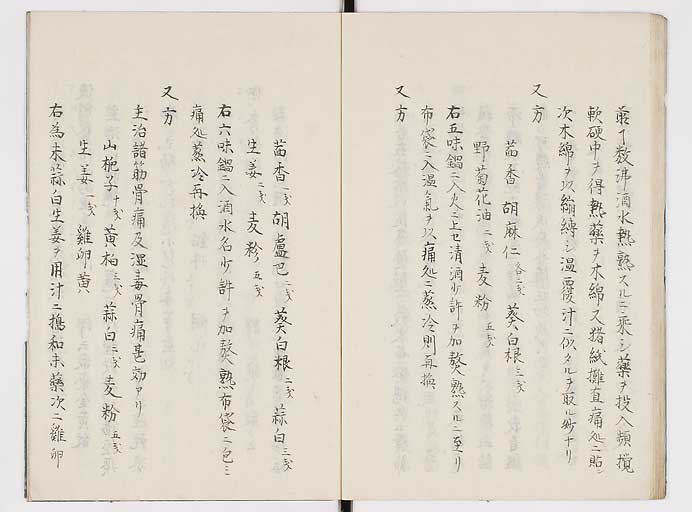 煎丁数沸酒水熱熟スルニ乘シ藥ヲ投入頻攪
軟硬中ヲ得熱藥ヲ木綿又猪紙攤直痛処ニ貼シ
次木綿ヲ以綳縛シ温覆汁ニ似タルヲ取ル妙ナリ
又方
茴香 胡麻仁各二戔 葵白根三戔
野菊花油二戔 麦粉五戔
右五味鍋ニ入火ニ上セ清酒少許ヲ加熬熟スルニ至リ
布袋ニ入温氣ヲ以痛処ニ蒸冷則再換
又方
茴香一戔 胡盧巴二戔 葵白根二戔 蒜白三戔
生姜二戔 麦粉五戔
右六味鍋ニ入酒水各少許ヲ加熬熟布袋ニ包ミ
痛処蒸冷再換
又方
主治諸筋骨痛及湿毒骨痛甚効アリ
山梔子十戔 黄柏三戔 蒜白二戔 麦粉五戔
生姜一戔 雞卵黄
右為末蒜白生姜ヲ用汁ニ搗和末藥次ニ雞卵